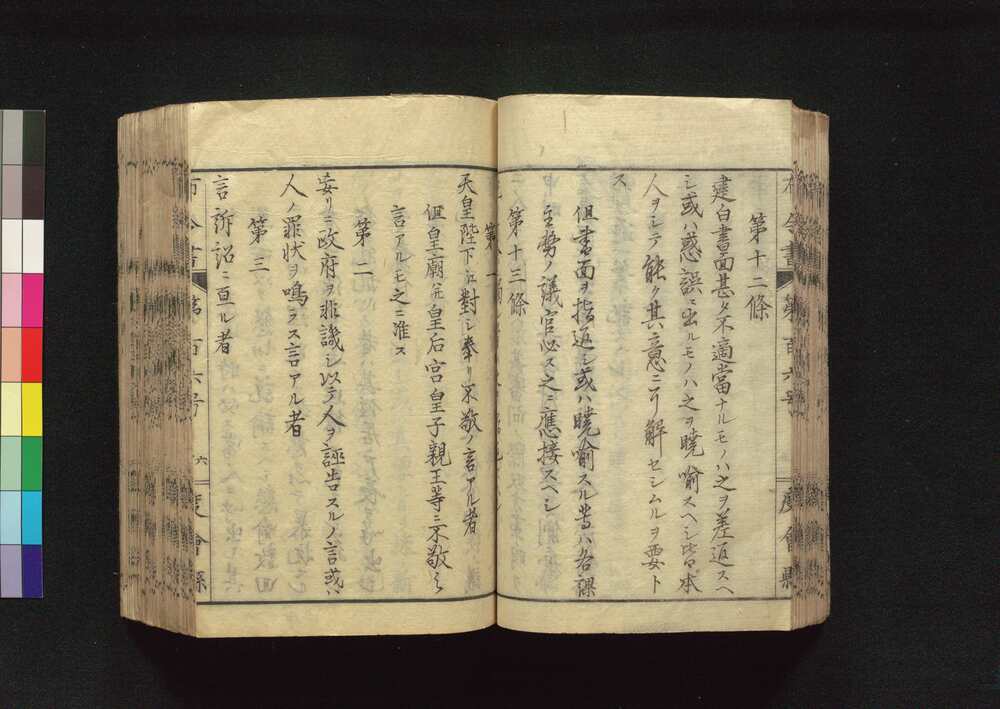 第十二條
建白書面甚タ不適當ナルモノハ之ヲ差返スヘ
シ或ハ惑誤ニ出ルモノハ之ヲ曉喻スヘシ皆本
人ヲシテ能ク其意ニ了解セシムルヲ要ト
ス
但書面ヲ指返シ或ハ曉喻スル等ハ各課
主務ノ議官必ス之ニ應接スヘシ
第十三條
第一
天皇陛下ニ對シ奉リ不敬ノ言アル者
但皇廟并皇后宮皇子親王等ニ不敬之
言アルモ之ニ准ス
第二
妄リニ政府ヲ非議シ以テ人ヲ誣告スルノ言或ハ
人ノ罪状ヲ鳴ラス言アル者
第三
言訴訟ニ亘ル者
布令書 第百六号 六 度會縣